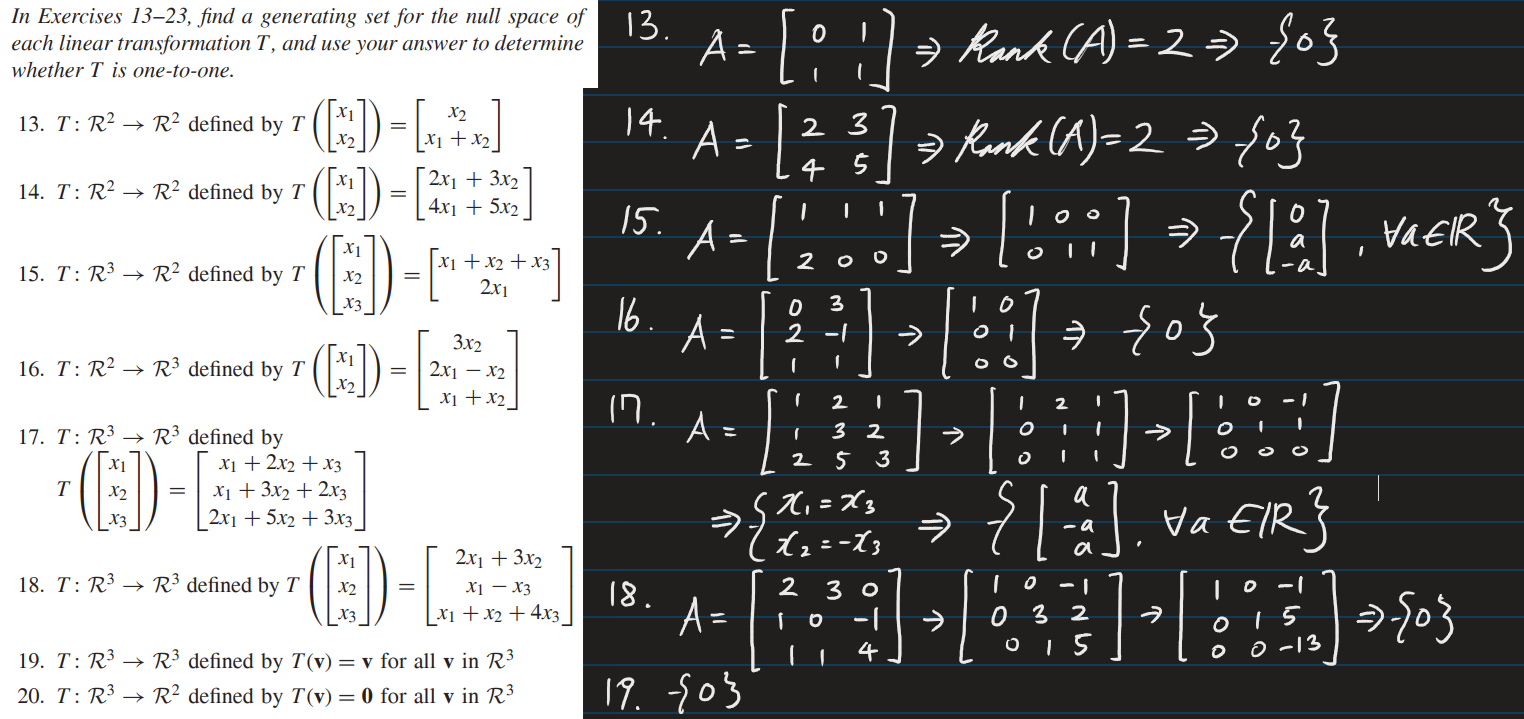 In Exercises 13–23, find a generating set for the null space of
each linear transformation T, and use your answer to determine
whether T is one-to-one.
13. T: R² → R² defined by T([x₁; x₂]) = [x₂; x₁ + x₂]
14. T: R² → R² defined by T([x₁; x₂]) = [2x₁ + 3x₂; 4x₁ + 5x₂]
15. T: R³ → R² defined by T([x₁; x₂; x₃]) = [x₁ + x₂ + x₃; 2x₁]
16. T: R² → R³ defined by T([x₁; x₂]) = [3x₂; 2x₁ − x₂; x₁ + x₂]
17. T: R³ → R³ defined by
T([x₁; x₂; x₃]) = [x₁ + 2x₂ + x₃; x₁ + 3x₂ + 2x₃; 2x₁ + 5x₂ + 3x₃]
18. T: R³ → R³ defined by T([x₁; x₂; x₃]) = [2x₁ + 3x₂; x₁ − x₃; x₁ + x₂ + 4x₃]
19. T: R³ → R³ defined by T(v) = v for all v in R³
20. T: R³ → R² defined by T(v) = 0 for all v in R³
13. A = [0 1; 1 1] ⇒ Rank(A) = 2 ⇒ {0}
14. A = [2 3; 4 5] ⇒ Rank(A) = 2 ⇒ {0}
15. A = [1 1 1; 2 0 0] ⇒ [1 0 0; 0 1 1] ⇒ {[0; a; -a], ∀a∈ℝ}
16. A = [0 3; 2 -1; 1 1] → [1 0; 0 1; 0 0] ⇒ {0}
17. A = [1 2 1; 1 3 2; 2 5 3] → [1 2 1; 0 1 1; 0 1 1] → [1 0 -1; 0 1 1; 0 0 0]
⇒ {x₁ = x₃; x₂ = -x₃ ⇒ {[a; -a; a], ∀a ∈ℝ}
18. A = [2 3 0; 1 0 -1; 1 1 4] → [1 0 -1; 0 3 2; 0 1 5] → [1 0 -1; 0 1 5; 0 0 -13] ⇒ {0}
19. {0}